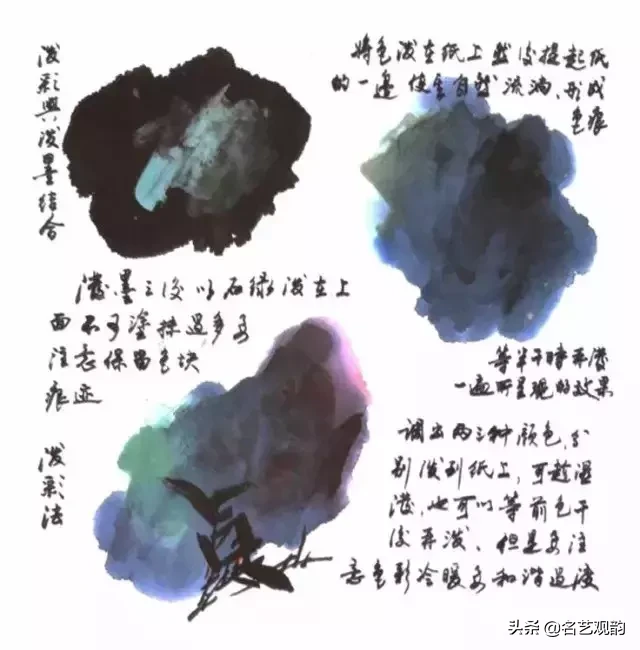 泼彩與泼墨结合
将色泼在纸上然后提起纸
的一边使色自然流淌、形成
色痕
泼墨之後以石绿泼在上
面不可塗抹過多要
注意保留色块
痕迹
等半干時再泼
一遍所呈现的效果
泼彩法
调出两三种颜色,分
别泼到纸上,可趁湿
泼,也可以等前色干
后再泼、但是要注
意色彩冷暖要和谐过渡
头条@名艺观韵